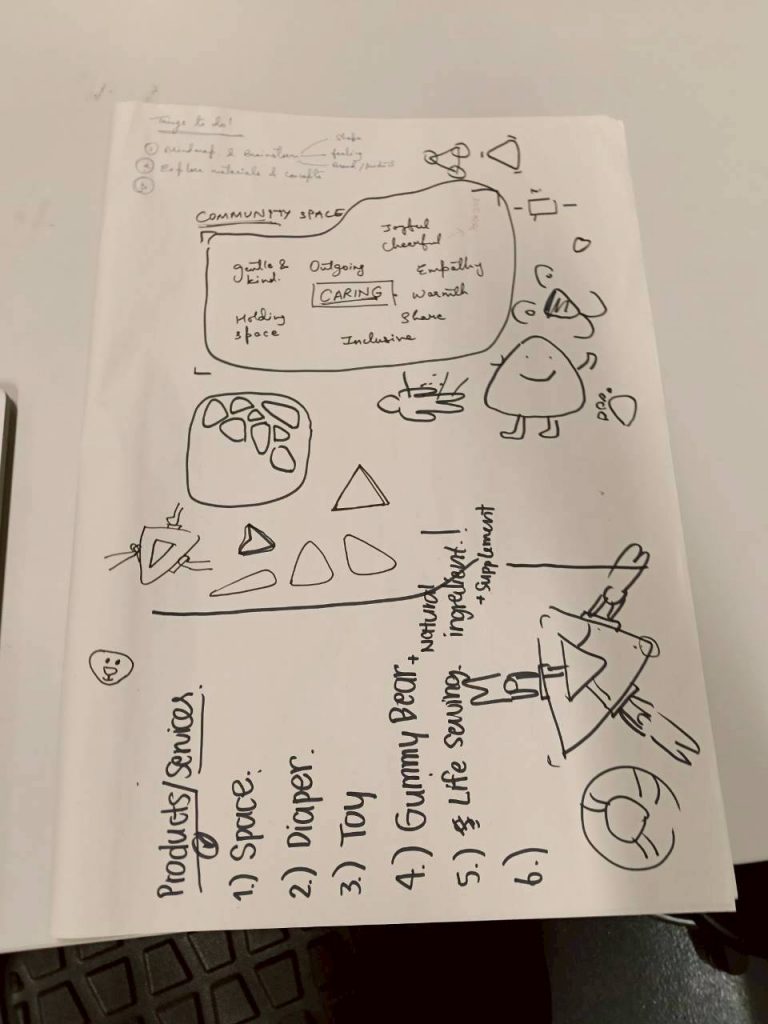 Things to do!
① Mindmap & Brainstorm
shape
feeling
Brand/
② Explore materials & concepts
③
COMMUNITY SPACE
Joyful
Cheerful
Gentle &
kind.
Outgoing
Empathy
CARING
Warmth
Share
Holding
space
Inclusive
Products/Services.
1.) Space.
2.) Diaper.
3.) Toy
4.) Gummy Bear + Natural
ingredient..!
+ Supplement
5.) Life saving.
6.)